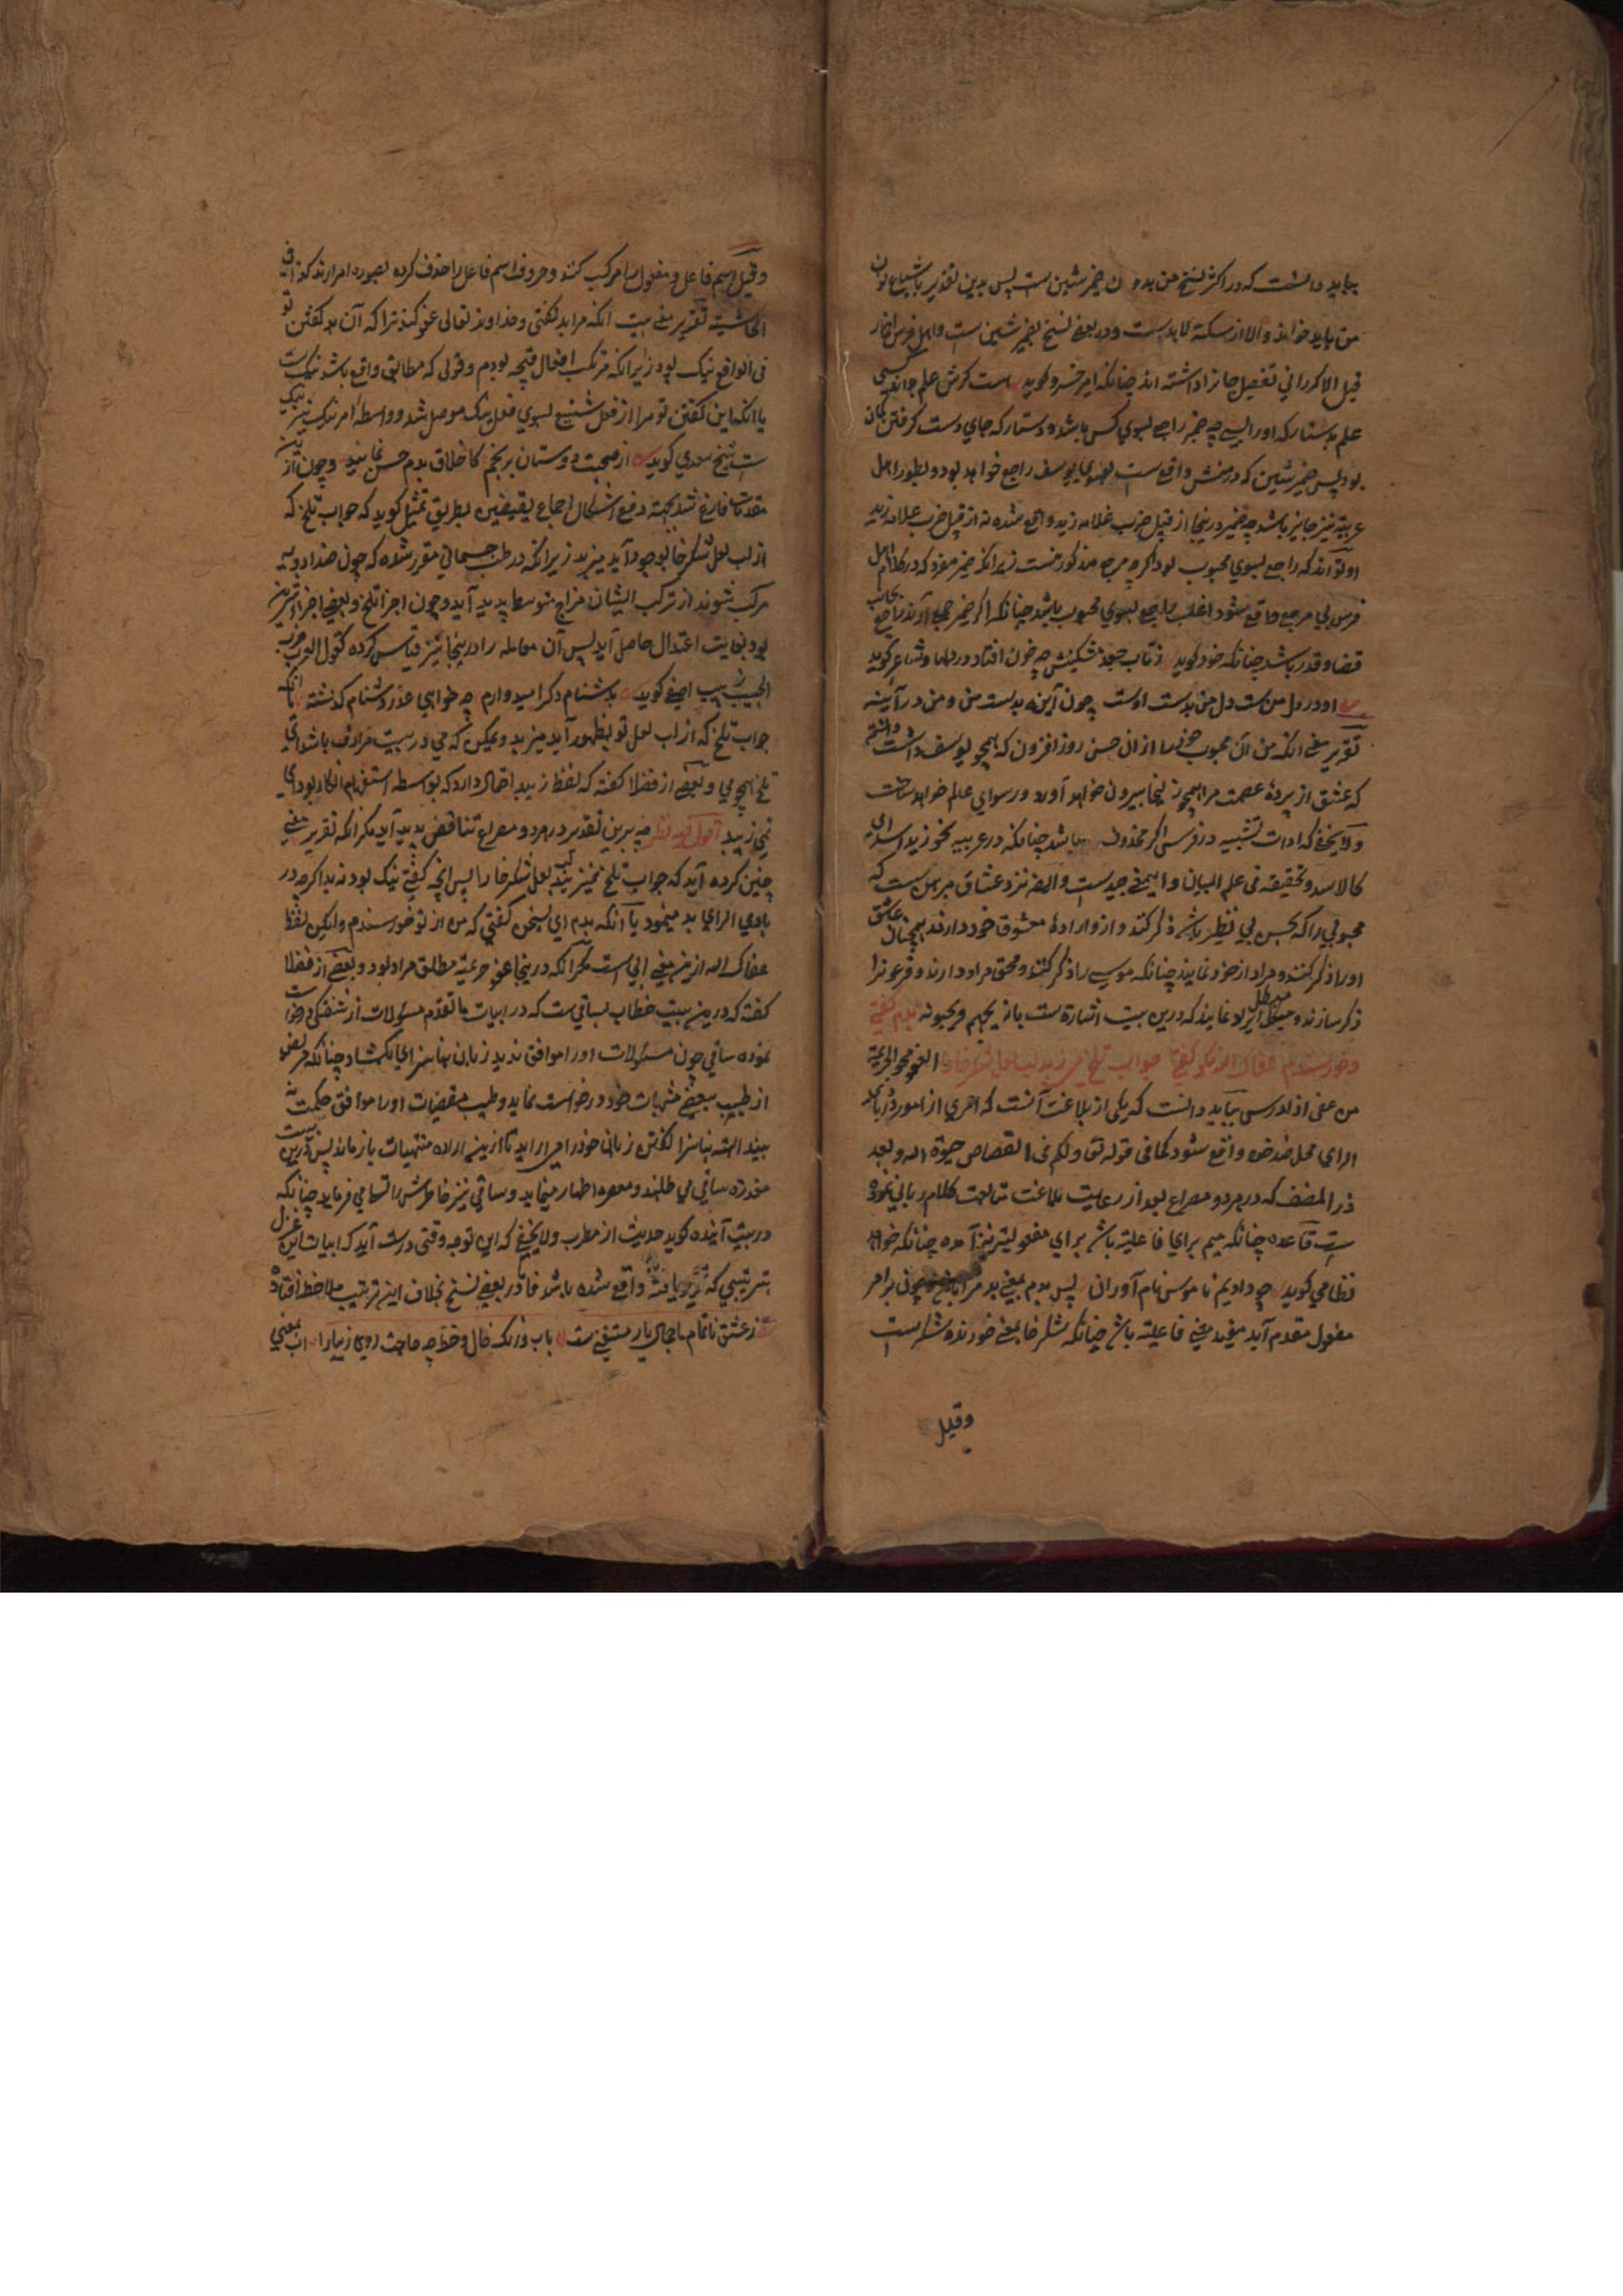 بباید دانست که در اکثر نسخ من بدون ضمیر شین ست پس بدین تقدیر باشباع نون
من باید خواند والا از سکته لابدست و در بعضی نسخ بضمیر شین است و اهل فرس اضمار
قبل الذکر را فی تفصیل جائز داشته اند چنانکه امیر خسرو گوید کسی
علم دستار که اورا پسی چه ضمیر راجع بسوی کس باشد و دستار که جای دست گرفتن
بود پس ضمیر شین که در منش واقع ست بسوی یوسف راجع خواهد بود و بطور اهل
عربیة نیز جایز باشد چه ضمیر درینجا از قبیل ضرب غلامه زید واقع شده نه از قبیل ضرب غلامه زید
او تواند که راجع بسوی محبوب بود اگرچه مرجع مذکور نیست زیرا که ضمیر مفرد که در کلام اهل
فرس بی مرجع واقع شود اغلب راجع بسوی محبوب باشد چنانکه اگر ضمیر جمع آرند راجع بجانب
قضا و قدر باشد چنانکه خود گوید ز تاب جعد مشکینش چه خون افتاد در دلها و شاعر گوید
او در دل من ست دل من بدست اوست چون آینه بدست من و من در آینه
تقریر معنی آنکه من آن محبوب خود را ازان حسن روز افزون که همچو یوسف داشت دانستم
که عشق از پردهٔ عصمت مرا همچو زلیخا بیرون خواهد آورد و رسوای عالم خواهد ساخت
ولا یخفی که ادات تشبیه در فرسی اکثر محذوف میباشد چنانکه در عربیه نحو زید اسد ای
کالاسد و تحقیقه فی علم البیان و این معنی جیدست و ایضا نزد عشاق مبرهن ست که
محبوبی را که بحسن بی نظیر باشد ذکر کنند و ازو اراده معشوق خود دارند همچنان عاشق
اورا ذکر کنند و مراد از خود نمایند چنانکه موسی را ذکر کنند و محق مراد دارند و فرعون را
ذکر سازند و مبطل ارادد نمایند که درین بیت اشارة ست بآیه یحبهم و یحبونه بدم گفتی
و خورسندم عفاک الله نکو گفتی جواب تلخ می زیبد لب لعل شکرخارا العفو محو الجریمة
من عفی اذا درس بباید دانست که یکی از بلاغت آنست که امری از امور در بادی
الرای محل خدشه واقع شود کما فی قوله تعا ولکم فی القصاص حیوة الله و بعد
ست قاعده چنانکه میم برای فاعلیة باشد برای مفعولیة نیز آمده چنانکه خواجه
نظامی گوید چو دادیم ناموس نام آوران پس بدم بمعنی بد مرا چون برامر
مفعول مقدم آید مفید معنی فاعلیة باشد چنانکه شکرخا بمعنی خورنده شکر است
وقیل
وقیل اسم فاعل و مفعول را مرکب کنند و حروف اسم فاعل را حذف کرده بصوره امر ارند کذا فی
الحاشیة تقریر معنی بیت آنکه مرا بد گفتی و خداوند تعالی عفو کند ترا که آن بد گفتن تو
فی الواقع نیک بود زیرا که مرتکب افعال قبیحه بودم و قولی که مطابق واقع باشد نیک ست
یا آنکه این گفتن تو مرا از فعل شنیع بسوی فعل نیک موصل شد و واسطهٔ امر نیک نیز نیک
ست شیخ سعدی گوید از صحبت دوستان برنجم کاخلاق بدم حسن نمایند و چون از
مقدمات فارغ شد بجهة دفع اشکال اجماع نقیضین بطریق تمثیل گوید که جواب تلخ که
از لب لعل شکرخا بوجود آید میزیبد زیرا که در طب جسمانی مقرر شده که چون ضد ادویه
مرکب شوند از ترکیب ایشان مزاج متوسط پدید آید و چون اجزا تلخ و بعضی اجزا شیرین
بود بغایت اعتدال حاصل آید پس آن معامله را درینجا نیز قیاس کرده کقول العرب ضرب
الحبیب زبیب اصفی گوید بدشنام دگر امیدوارم چه خواهی عذر دشنام گذشته
جواب تلخ که از لب لعل تو بظهور آید میزیبد و یمکن که می در بیت مرادف باشد ای
تلخ همچو می و بعضی از فضلا گفته که لفظ زیبد احتمال دارد که بواسطه استفهام انکار بود ای
نمی زیبد اقول فیه نظر چه برین تقدیر در هر دو مصراع تناقض پدید آید مگر آنکه تقریر معنی
چنین کرده آید که جواب تلخ نمیزیبد لب لعل شکرخارا پس آنچه گفتی نیک بود نه بد اگرچه در
بادی الرای بد مینمود یا آنکه بدم ای بسخن گفتی که من از تو خورسندم ولیکن لفظ
عفاک الله ازین معنی ابی است مگر آنکه درینجا عفو جریمة مطلق مراد بود و بعضی از فضلا
گفته که درین بیت خطاب بساقی ست که در ابیات ما تقدم مسئولات از شفتگی درخواست
نموده ساقی چون مسئولات اورا موافق ندید زبان بناسزای بکشاد چنانکه مریض
از طبیب ببعضی مشتهیات خود درخواست نماید و طبیب مقتضیات اورا موافق حکمت نه
بیند البته بناسزا گفتن زبان خود را می آراید تا ازین اراده منتهیات باز ماند پس درین بیت
معذرة ساقی می طلبد و معصره اظهار مینماید و ساقی نیز خاطرش را تسلی میفرماید چنانکه
در بیت آینده گوید حدیث از مطرب ولا یخفی که این توجیه وقتی درست آید که ابیات این غزل
بترتیبی که واقع شده باشد فاما در بعضی نسخ بخلاف این ترتیب ملاحظه افتاده
ز عشق ناتمام ما جمال یار مستغنی ست باب و رنگ و خال و خط چه حاجت روی زیبارا اب بمعنی